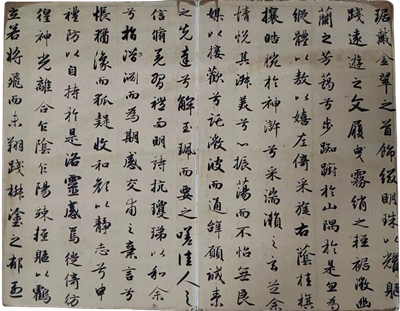 琚戴金翠之首飾綴明珠以耀軀
踐遠遊之文履曳霧綃之輕裾微幽
蘭之芳藹兮步踟躕於山隅於是忽焉
縱體以遨以嬉左倚采旄右蔭桂旗
攘皓腕於神滸兮采湍瀨之玄芝余
情悅其淑美兮心振蕩而不怡無良
媒以接歡兮託微波而通辭願誠素
之先達兮解玉珮而要之嗟佳人之
信脩羌習禮而明詩抗瓊珶以和余
兮指潛淵而為期感交甫之棄言兮
悵猶豫而狐疑收和顏以靜志兮申
禮防以自持於是洛靈感焉徙倚彷
徨神光離合乍陰乍陽竦輕軀以鶴
立若將飛而未翔踐椒塗之郁烈